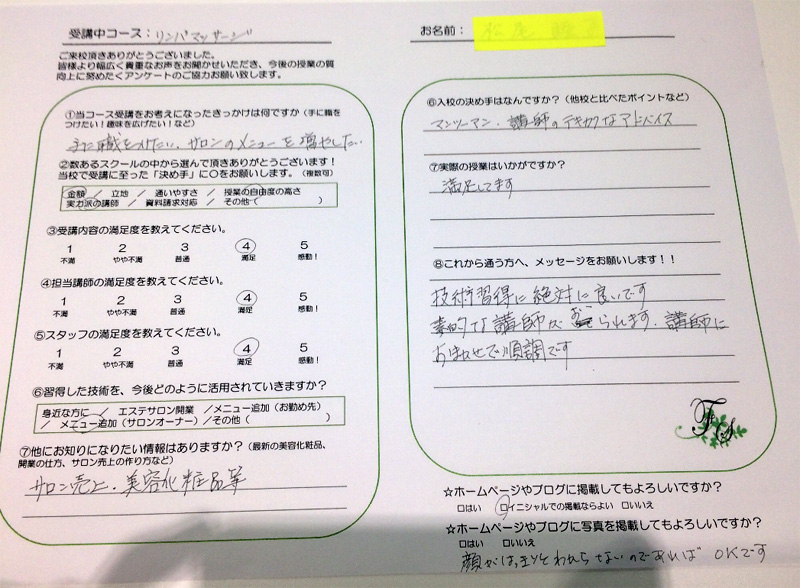 受講中コース：リンパマッサージ
お名前：
ご来校頂きありがとうございました。
皆様より幅広く貴重なお声をお聞かせいただき、今後の授業の質
向上に努めたくアンケートのご協力お願い致します。
①当コース受講をお考えになったきっかけは何ですか（手に職を
つけたい！趣味を広げたい！など）
手に職をつけたい、サロンのメニューを増やしたい
②数あるスクールの中から選んで頂きありがとうございます！
当校で受講に至った「決め手」に〇をお願いします。（複数可）
金額 ／ 立地 ／ 通いやすさ ／ 授業の自由度の高さ
実力派の講師 ／ 資料請求対応 ／ その他（ ）
③受講内容の満足度を教えてください。
1 2 3 4 5
不満 やや不満 普通 満足 感動！
④担当講師の満足度を教えてください。
1 2 3 4 5
不満 やや不満 普通 満足 感動！
⑤スタッフの満足度を教えてください。
1 2 3 4 5
不満 やや不満 普通 満足 感動！
⑥習得した技術を、今後どのように活用されていきますか？
身近な方に ／ エステサロン開業 ／メニュー追加（お勤め先）
／ メニュー追加（サロンオーナー）／その他（ ）
⑦他にお知りになりたい情報はありますか？（最新の美容化粧品、
開業の仕方、サロン売上の作り方など）
サロン売上、美容化粧品等
⑥入校の決め手はなんですか？（他校と比べたポイントなど）
マンツーマン、講師のテキカクなアドバイス
⑦実際の授業はいかがですか？
満足してます
⑧これから通う方へ、メッセージをお願いします！！
技術習得に絶対に良いです
素的な講師がおられます、講師に
おまかせで順調です
FS
☆ホームページやブログに掲載してもよろしいですか？
□はい □イニシャルでの掲載ならよい □いいえ
☆ホームページやブログに写真を掲載してもよろしいですか？
□はい □いいえ
顔がはっきりとわからないのであれば OKです